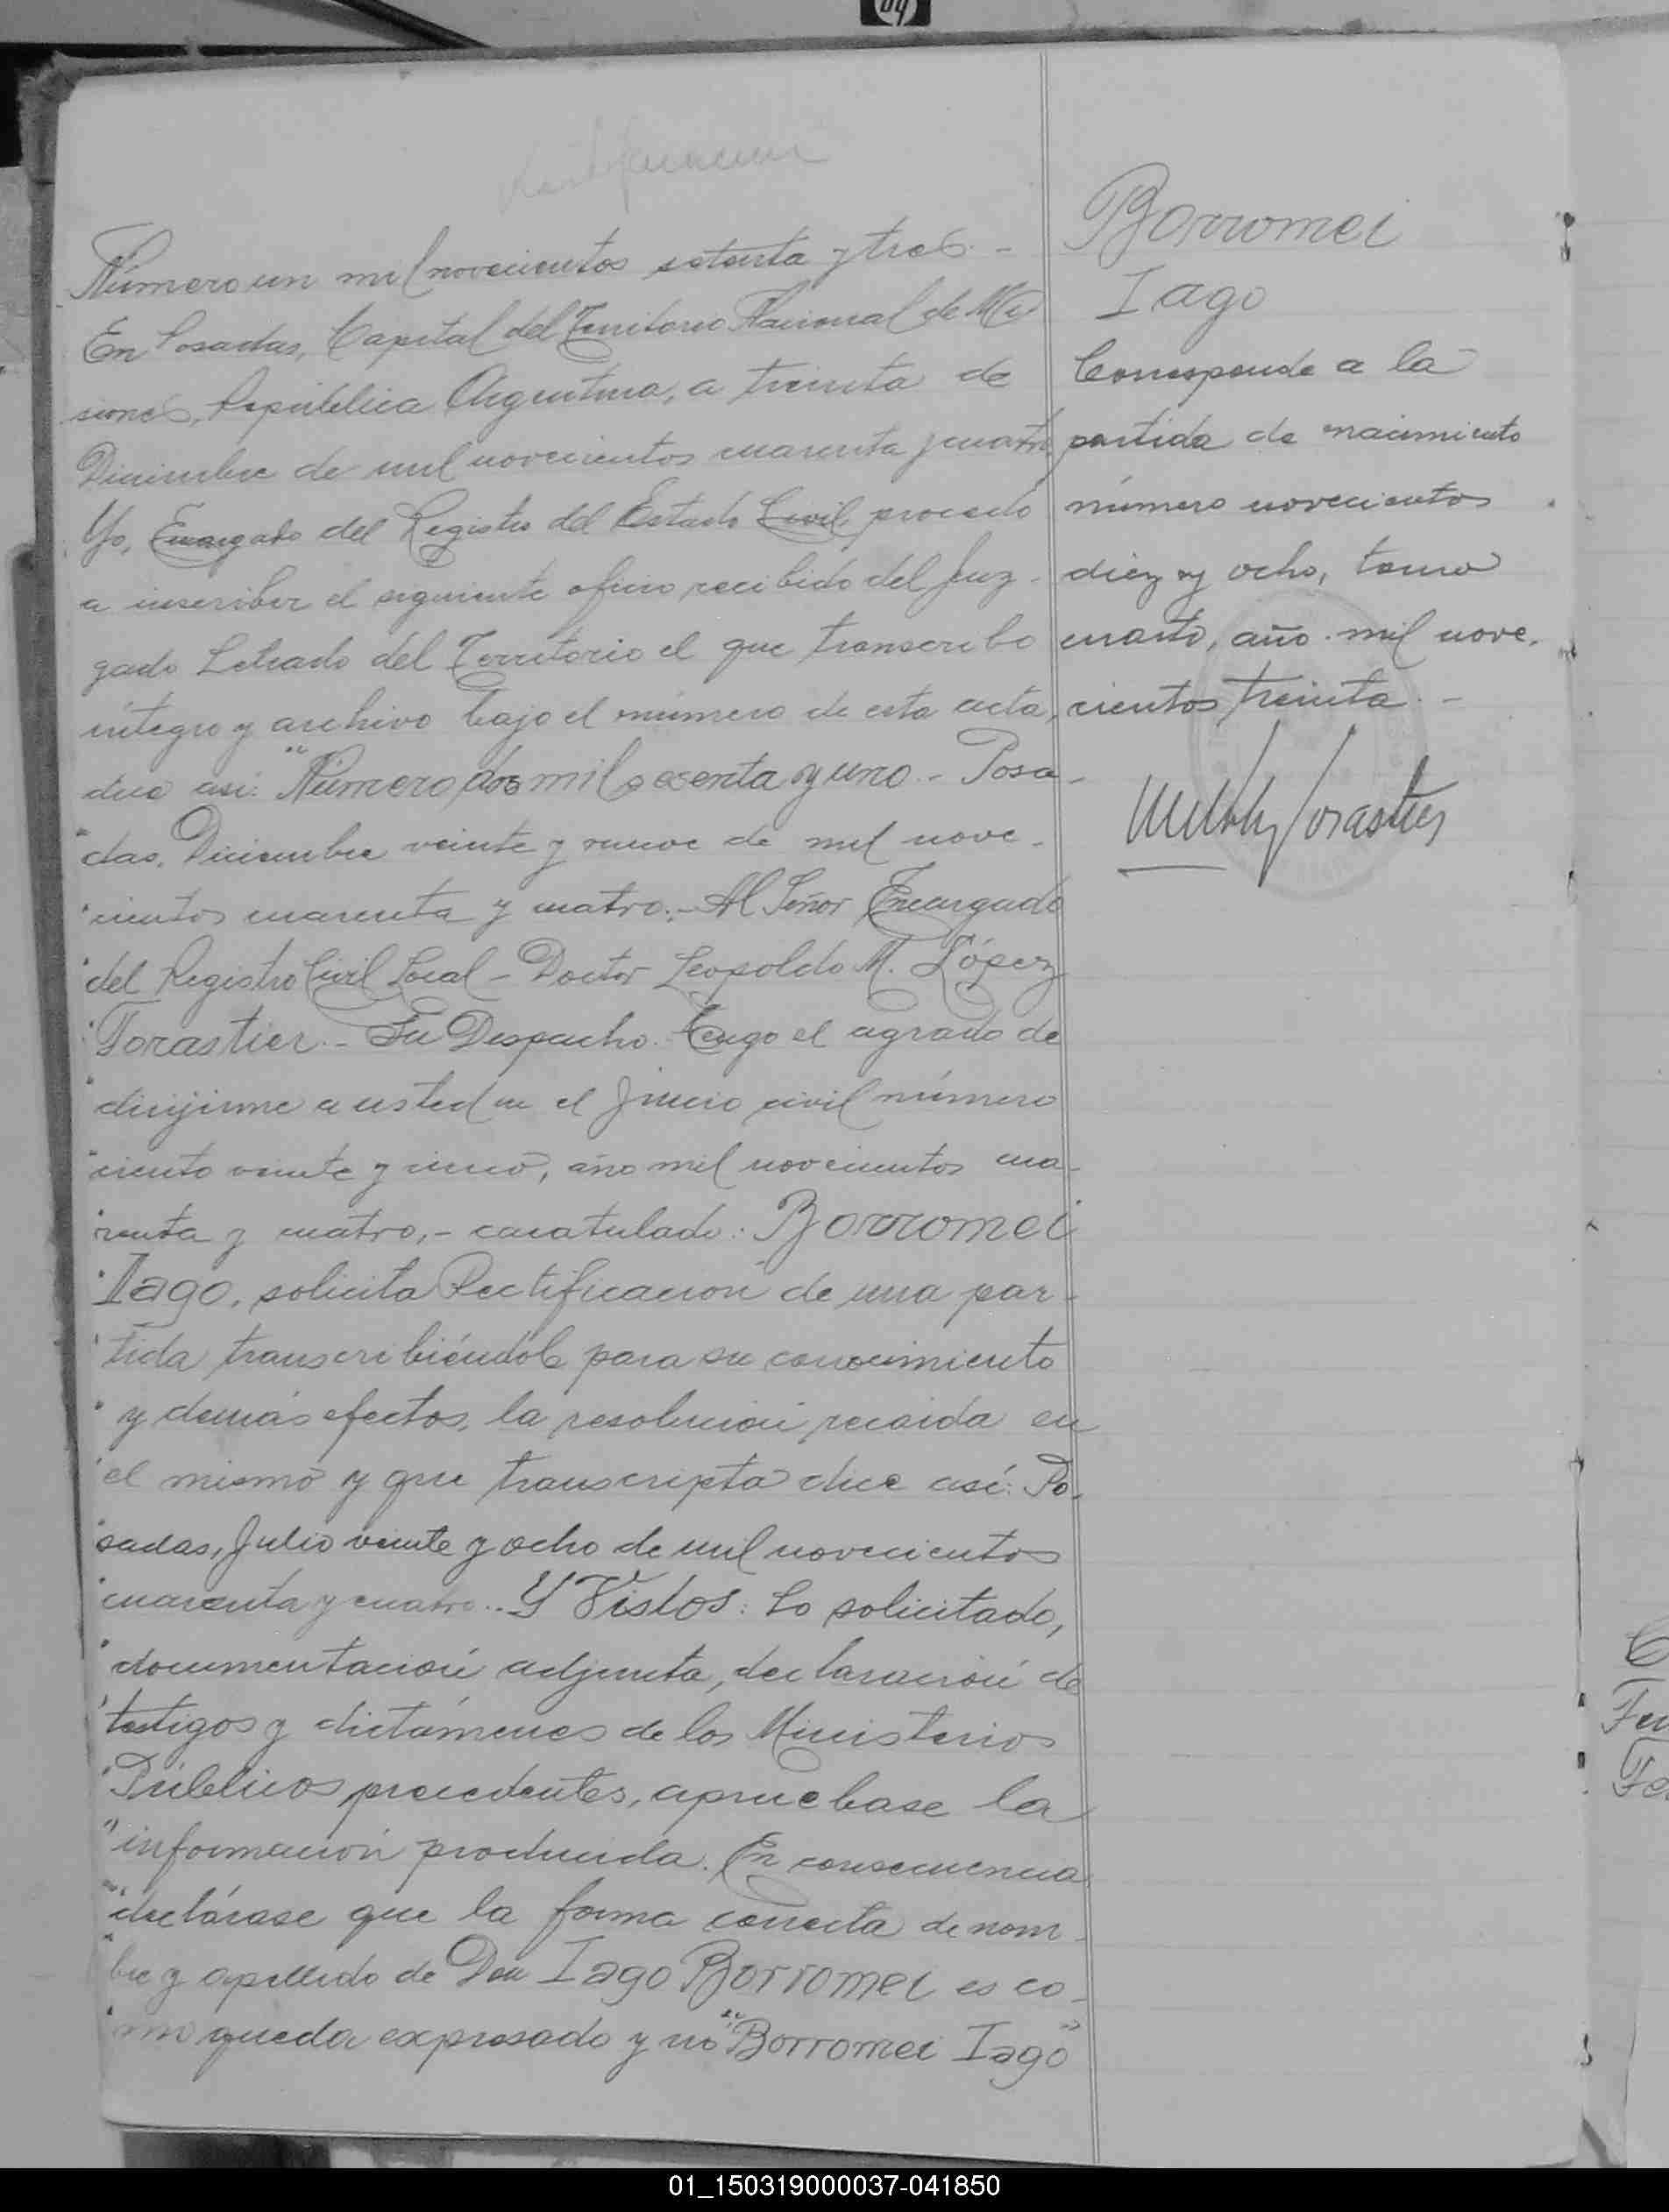 Rectificación
Número un mil novecientos setenta y tres. -
En Posadas, Capital del Territorio Nacional de Mi-
siones, República Argentina, a treinta de
Diciembre de mil novecientos cuarenta y cuatro,
Yo, Encargado del Registro del Estado Civil, procedo
a inscribir el siguiente oficio recibido del Juz-
gado Letrado del Territorio el que transcribo
íntegro y archivo bajo el número de esta acta,
dice así: "Número dos mil sesenta y uno. - Posa-
"das, Diciembre veinte y nueve de mil nove-
"cientos cuarenta y cuatro. - Al Señor Encargado
"del Registro Civil Local - Doctor Leopoldo M. López
"Forastier. - Su Despacho. Tengo el agrado de
"dirijirme a usted en el juicio civil número
"ciento veinte y cinco, año mil novecientos cua-
"renta y cuatro, - caratulado: Borromei
"Iago, solicita Rectificación de una par-
"tida transcribiéndole para su conocimiento
"y demás efectos, la resolución recaida en
"el mismo y que transcripta dice así: Po-
"sadas, Julio veinte y ocho de mil novecientos
"cuarenta y cuatro.. Y Vistos: Lo solicitado,
"documentación adjunta, declaración de
"testigos y dictámenes de los Ministerios
"Públicos precedentes, apruebase la
"información producida. En consecuencia,
"declárase que la forma correcta de nom-
"bre y apellido de Don Iago Borromei es co-
"mo queda expresado y no "Borromei Iago"
Borromei
Iago
Corresponde a la
partida de nacimiento
número novecientos
diez y ocho, tomo
cuarto, año mil nove-
cientos treinta. -
Forastier
hp
01_150319000037-041850